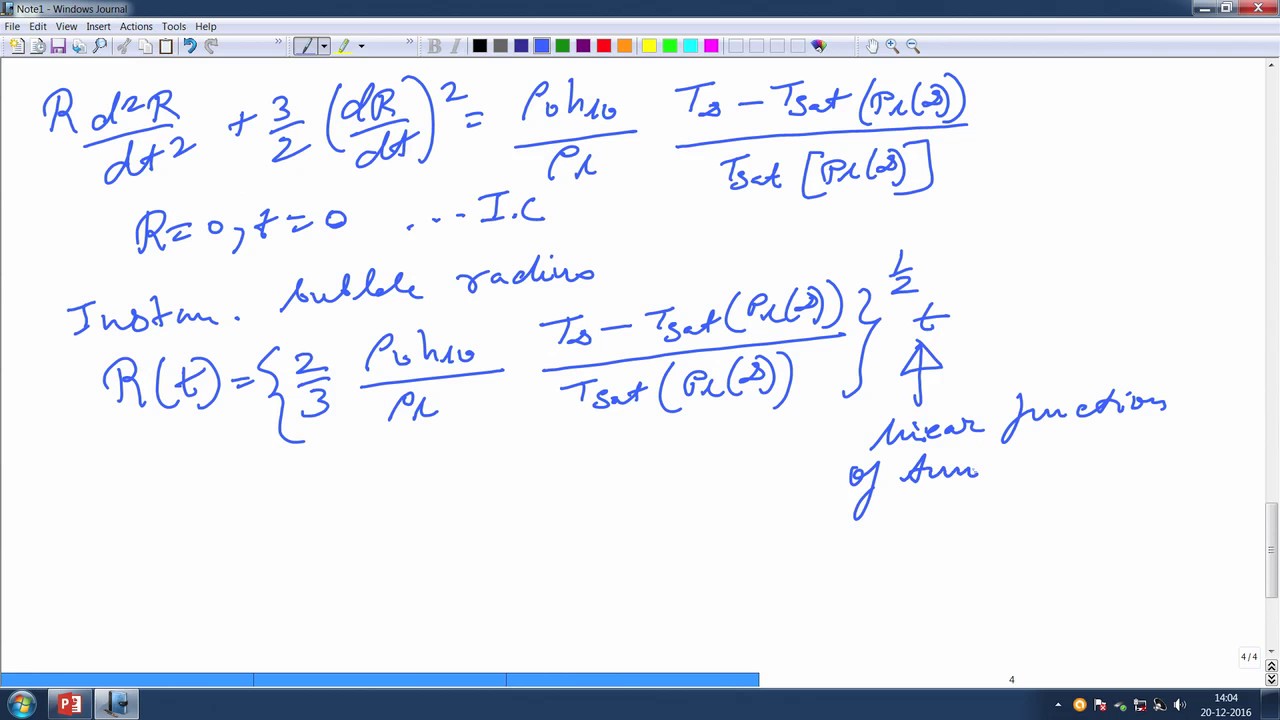 Note1 - Windows Journal
File Edit View Insert Actions Tools Help
R d²R/dt² + 3/2 (dR/dt)² = ρυhlυ/ρl T∞ - Tsat(Pl(∞))/Tsat[Pl(∞)]
R=0, t=0 ... I.C
Instan. bubble radius
R(t) = {2/3 ρυhlυ/ρl T∞ - Tsat(Pl(∞))/Tsat(Pl(∞))}^1/2 t
linear function
of
4/4
4
14:04
20-12-2016